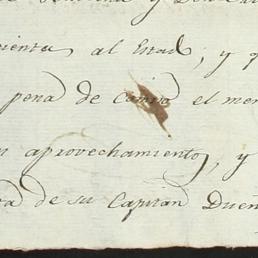 y
mienta al Estad; y q
pena de el men
n aprovechamiento, y
a de su Capitan Dueñ